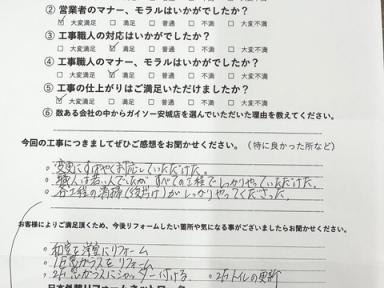 ② 営業者のマナー、モラルはいかがでしたか?
☑ 大変満足 □ 満足 □ 普通 □ 不満 □ 大変不満
③ 工事職人の対応はいかがでしたか?
□ 大変満足 ☑ 満足 □ 普通 □ 不満 □ 大変不満
④ 工事職人のマナー、モラルはいかがでしたか?
□ 大変満足 ☑ 満足 □ 普通 □ 不満 □ 大変不満
⑤ 工事の仕上がりはご満足いただけましたか?
☑ 大変満足 □ 満足 □ 普通 □ 不満 □ 大変不満
⑥ 数ある会社の中からガイソー安城店を選んでいただいた理由を教えてください。
今回の工事につきましてぜひご感想をお聞かせください。(特に良かった所など)
・変更にすばやくお応じていただけた。
・職人は若い人でしたが すべての工程でしっかりやっていただけた。
・各工程の清掃(後片付け)がしっかりやってくださった。
お客様によりご満足頂くため、今後リフォームしたい箇所や気になる事がございましたらお聞かせください。
・和室を洋室にリフォーム
・1F窓ガラスをリフォーム
・2F窓ガラスにシャッター付ける ・2Fトイレの更新